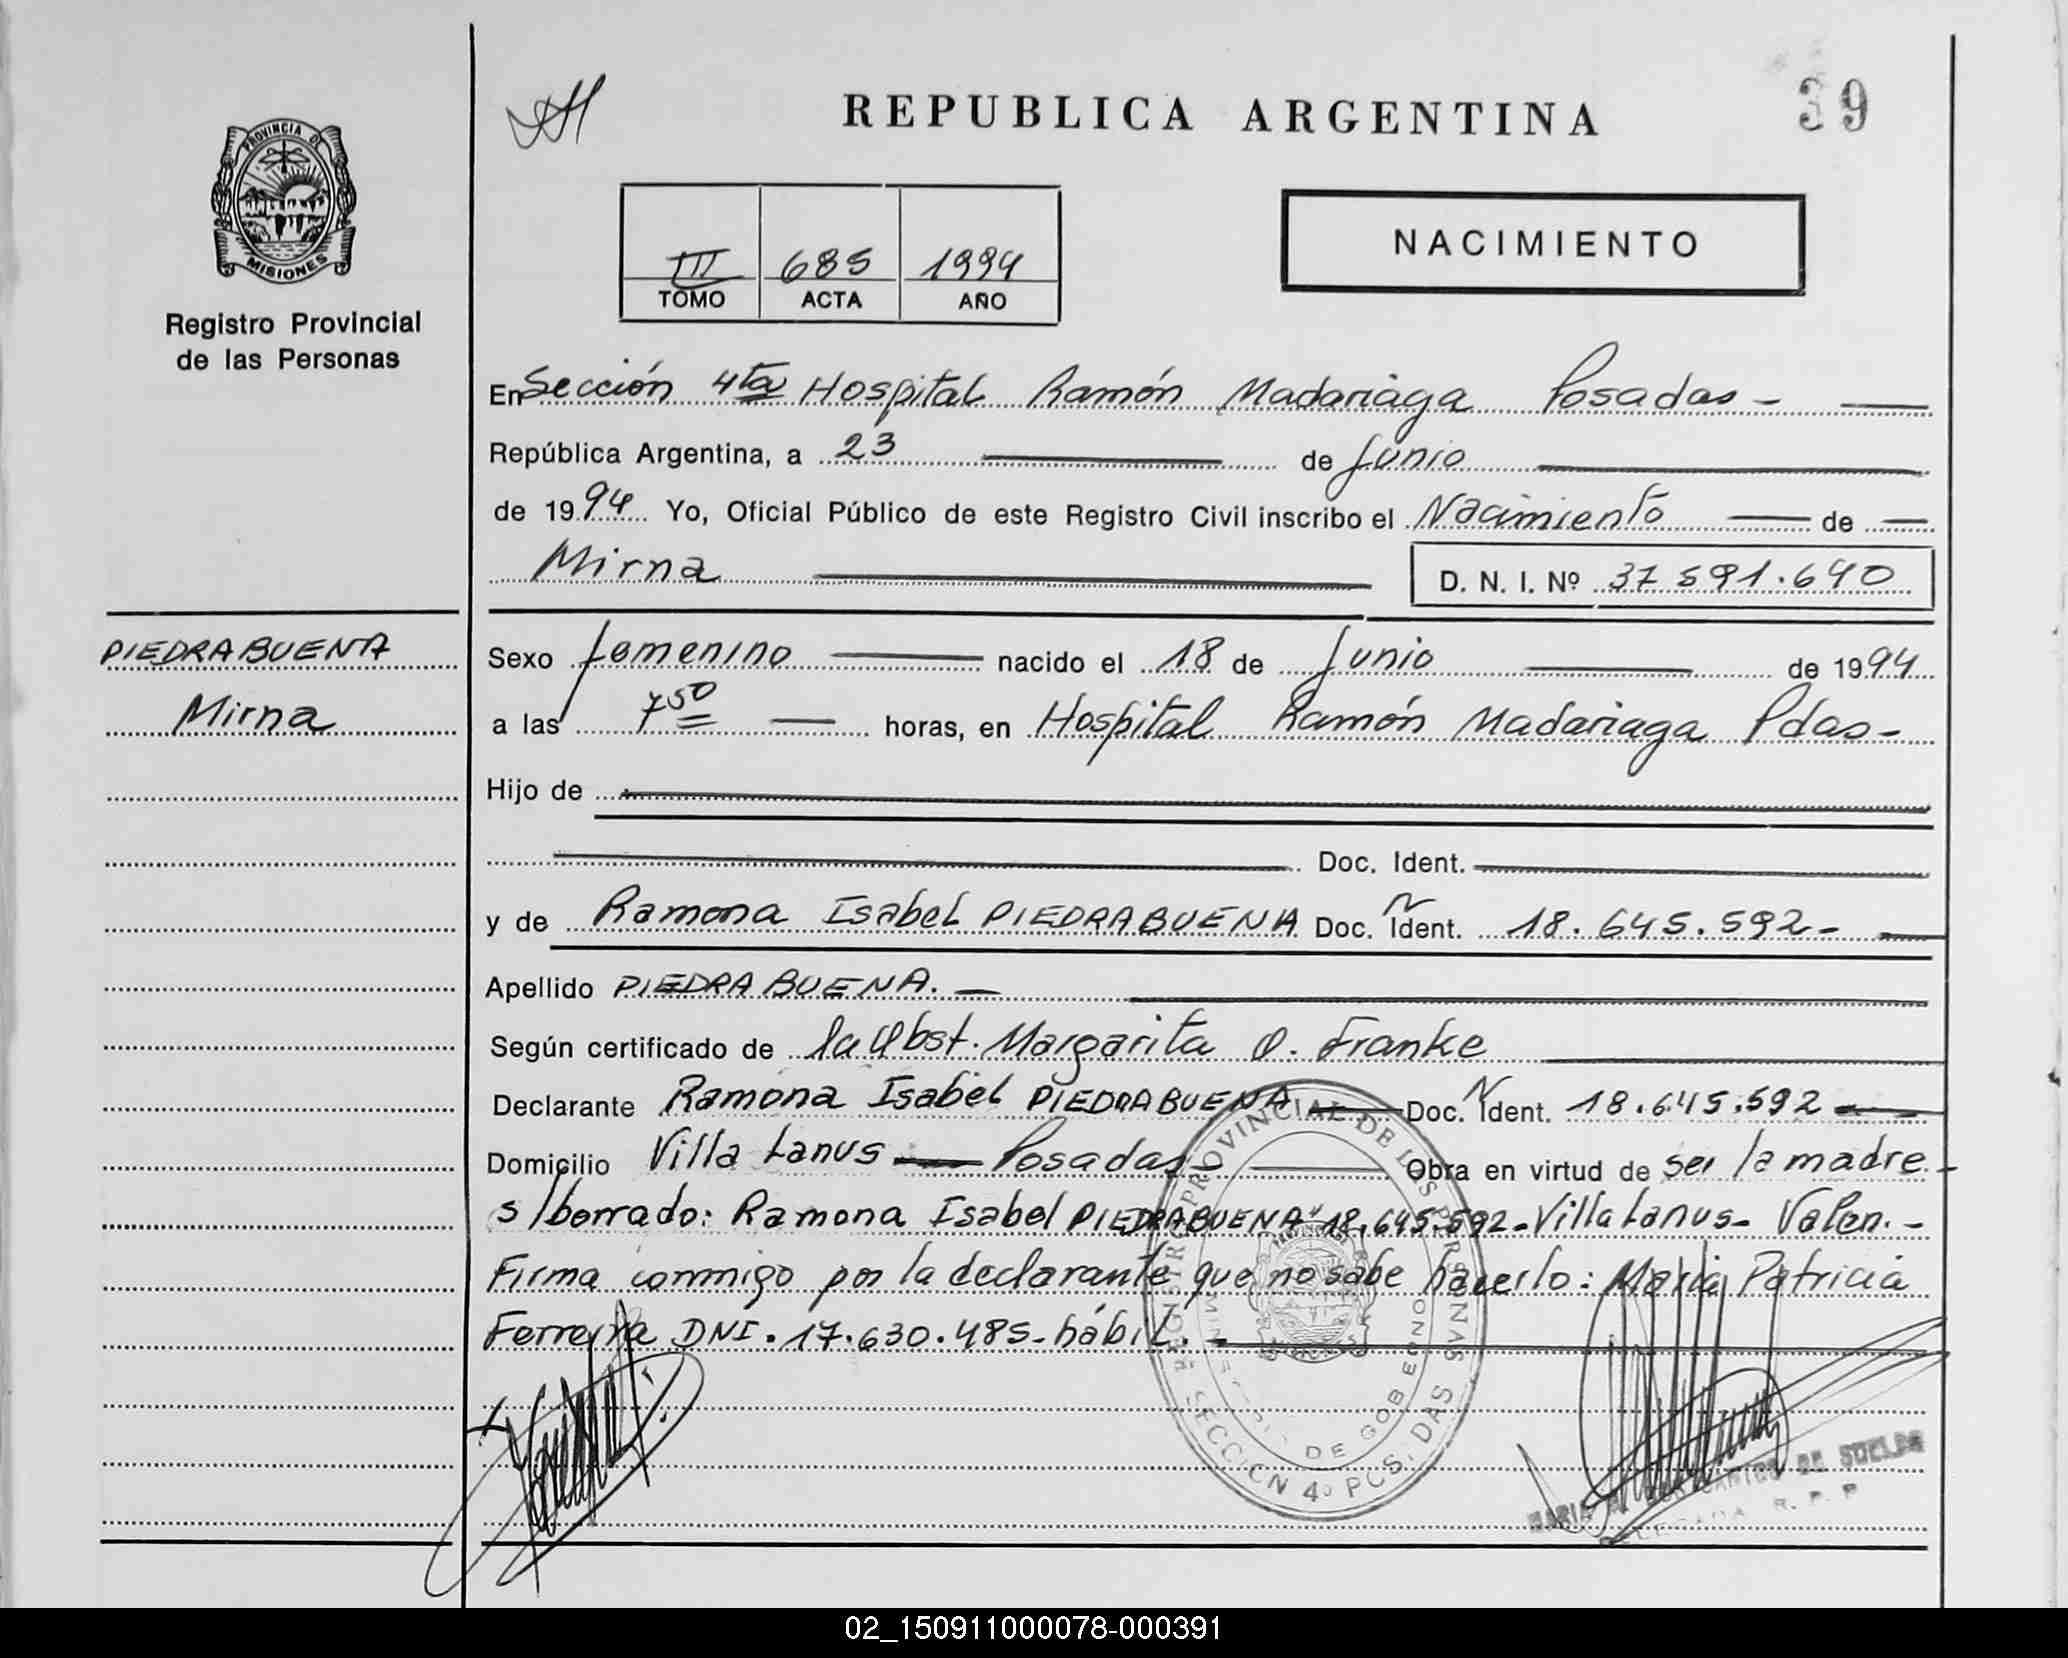 REPUBLICA ARGENTINA
39
PROVINCIA DE
MISIONES
Registro Provincial
de las Personas
III 685 1994
TOMO ACTA AÑO
NACIMIENTO
En Sección 4ta Hospital Ramón Madariaga Posadas -
República Argentina, a 23 de Junio
de 1994 Yo, Oficial Público de este Registro Civil inscribo el Nacimiento de
Mirna D. N. I. Nº 37.591.640
PIEDRABUENA
Mirna
Sexo femenino nacido el 18 de Junio de 1994
a las 7 50 horas, en Hospital Ramón Madariaga Pdas -
Hijo de
Doc. Ident.
y de Ramona Isabel PIEDRABUENA Doc. N Ident. 18.645.592 -
Apellido PIEDRABUENA. -
Según certificado de la Obst. Margarita O. Franke
Declarante Ramona Isabel PIEDRABUENA Doc. N Ident. 18.645.592
Domicilio Villa Lanus - Posadas - Obra en virtud de ser la madre. -
s/borrado: Ramona Isabel PIEDRABUENA" 18.645.592 - Villa Lanus - Valen. -
Firma conmigo por la declarante que no sabe hacerlo: María Patricia
Ferreyra DNI. 17.630.485 - hábil. -
REGISTRO PROVINCIAL DE LAS PERSONAS
MINISTERIO DE GOBIERNO
SECCION 4º POSADAS
MARIA DE SUELDO
DELEGADA R. P. P
02_150911000078-000391